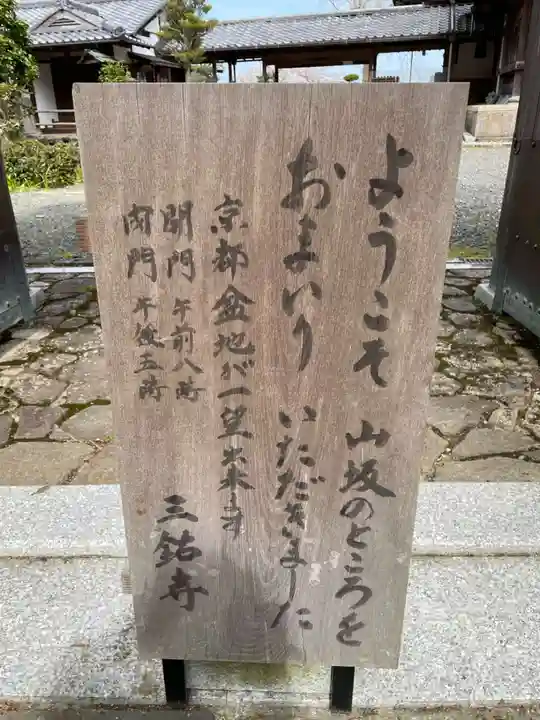 ようこそ 山坂のところを
おまいり いたゞきました
京都盆地が一望出来ます
開門 午前八時
閉門 午後五時
三鈷寺